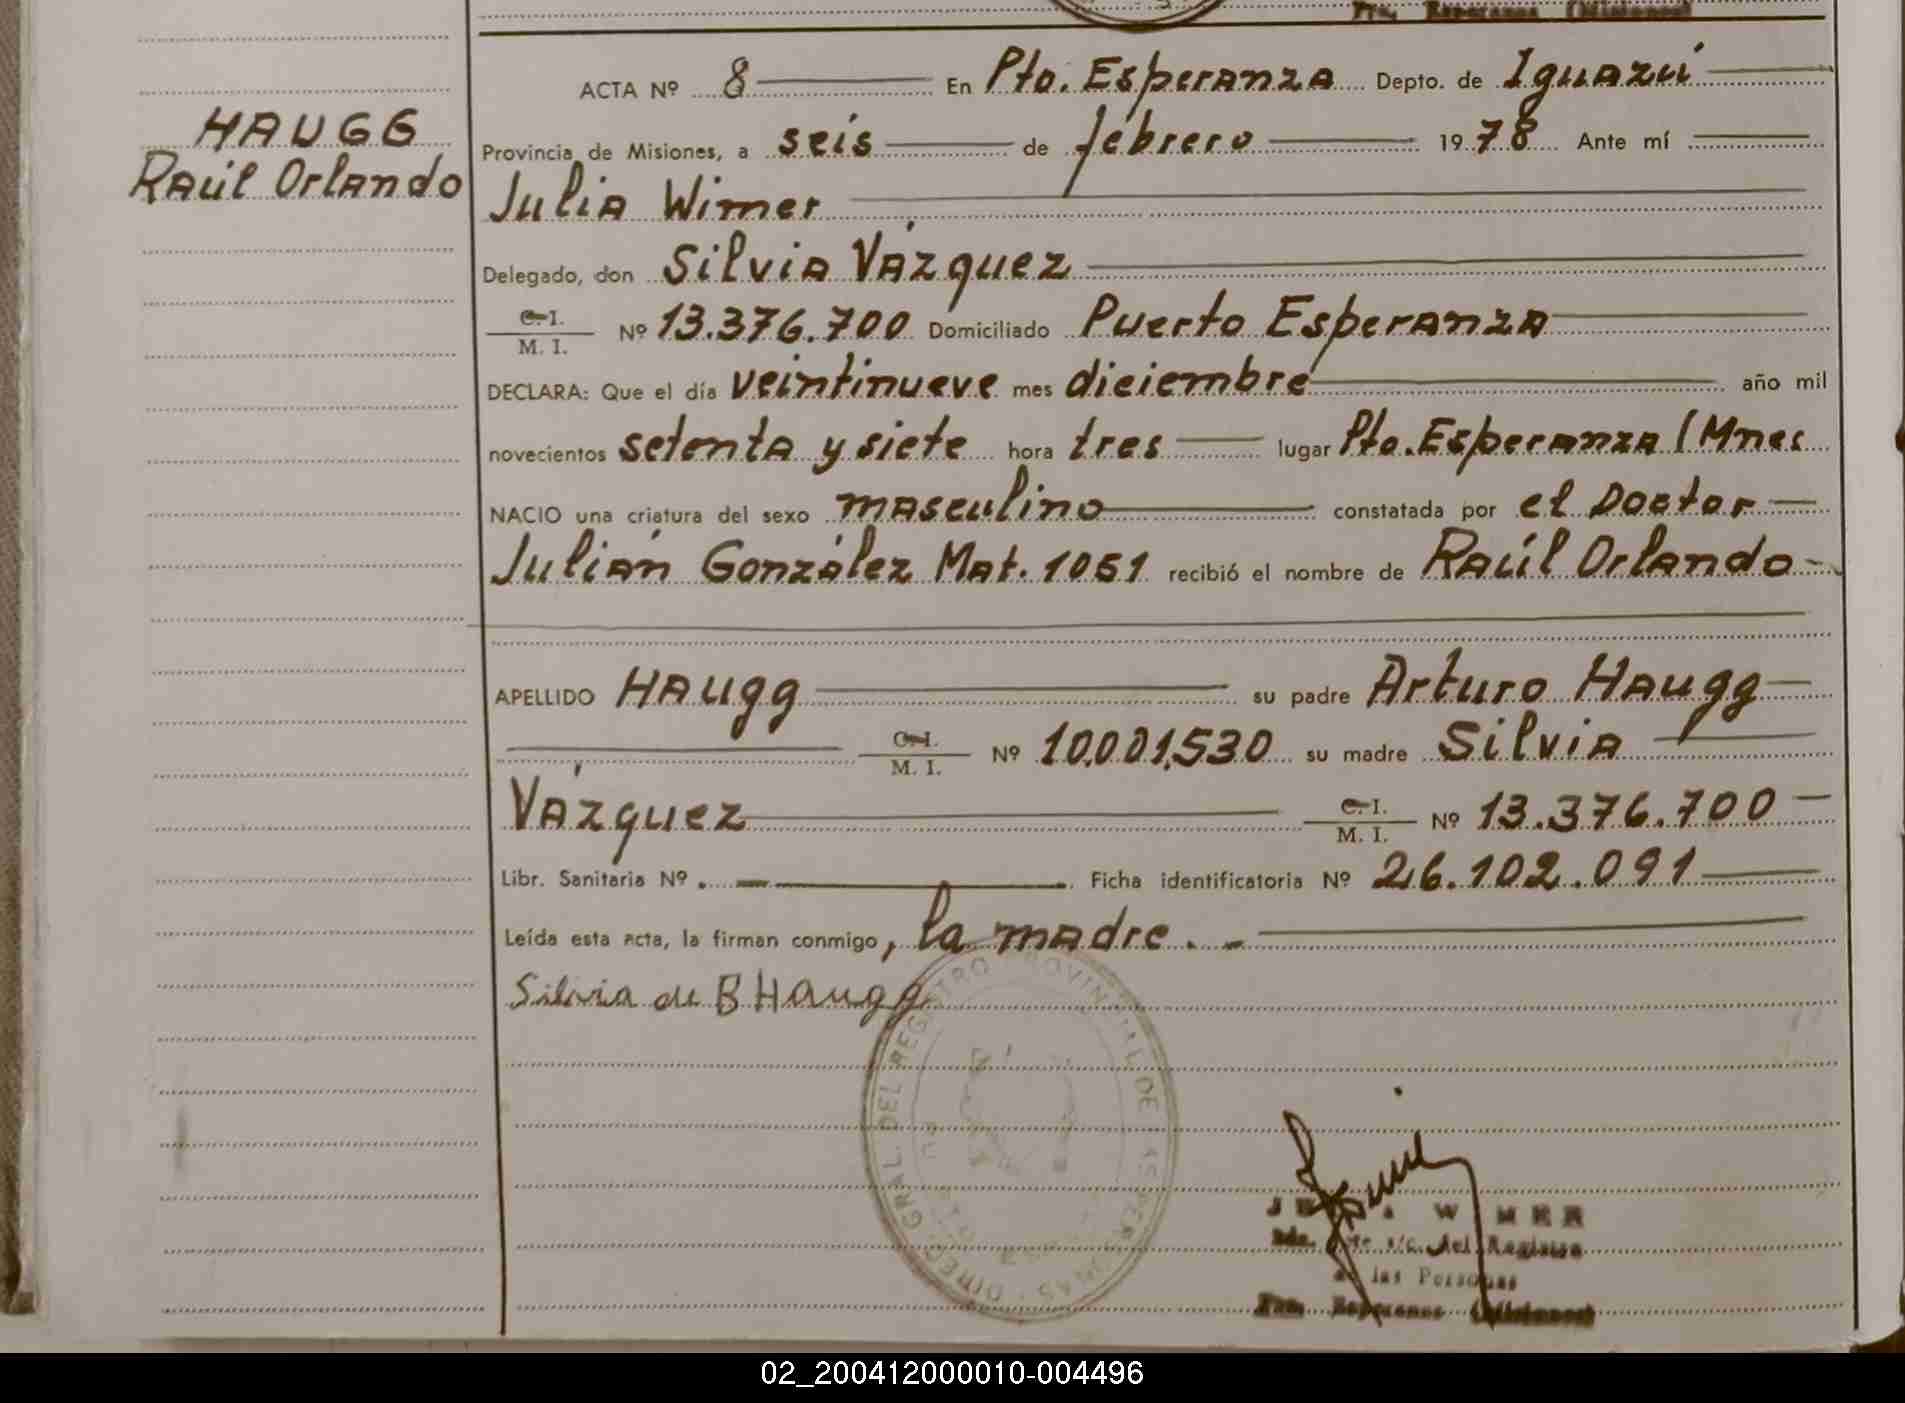 Pto. Esperanza (Misiones)
ACTA Nº 8 En Pto. Esperanza Depto. de Iguazú
HAUGG
Raúl Orlando
Provincia de Misiones, a seis de febrero 1978 Ante mí
Julia Wimer
Delegado, don Silvia Vázquez
C. I.
M. I. Nº 13.376.700 Domiciliado Puerto Esperanza
DECLARA: Que el día veintinueve mes diciembre año mil
novecientos setenta y siete hora tres lugar Pto. Esperanza (Mnes
NACIO una criatura del sexo masculino constatada por el Doctor
Julián González Mat. 1051 recibió el nombre de Raúl Orlando
APELLIDO Haugg su padre Arturo Haugg
C. I.
M. I. Nº 10.001.530 su madre Silvia
Vázquez C. I.
M. I. Nº 13.376.700
Libr. Sanitaria Nº Ficha identificatoria Nº 26.102.091
Leída esta acta, la firman conmigo, la madre. -
Silvia de B Haugg
DIREC. GRAL. DEL REGISTRO PROVINCIAL DE LAS PERSONAS
JULIA WIMER
a/c. del Registro
de las Personas
Pto. Esperanza (Misiones)
02_200412000010-004496